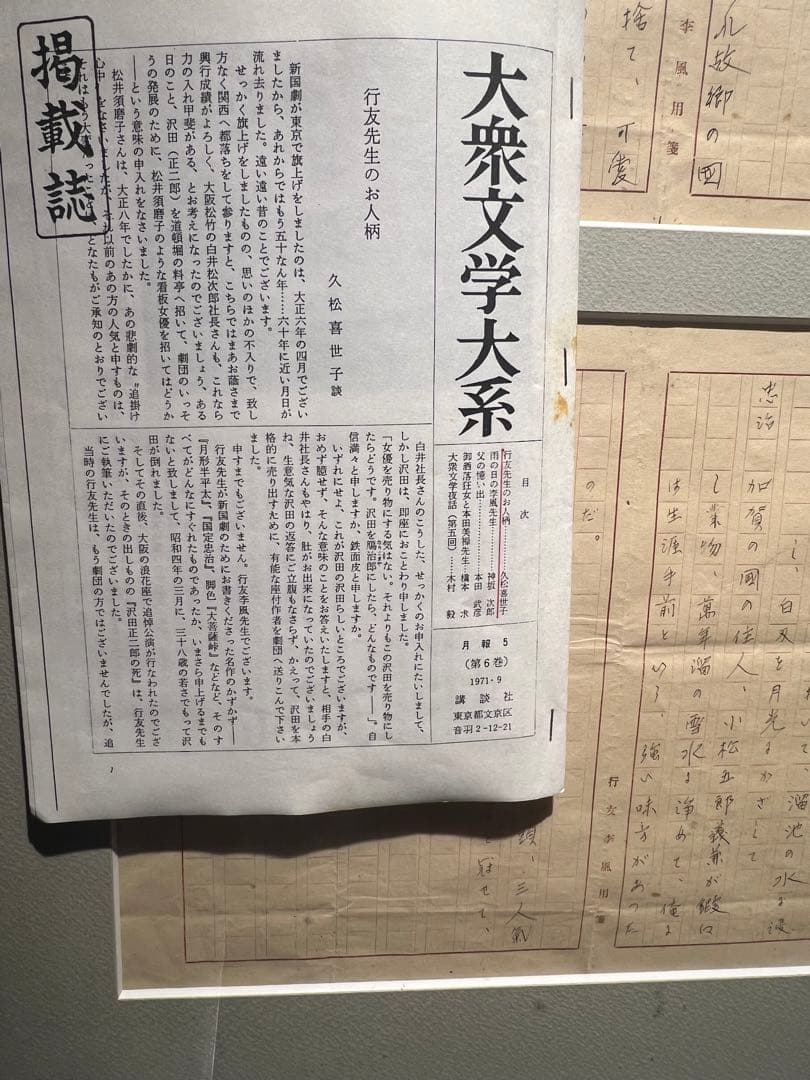 掲載誌
大衆文学大系
目次
行友先生のお人柄………久松喜世子
雨の日の李風先生………神根次郎
父の憶い出………本田武彦
御酒落狂女と本田美禅先生…橋本求
大衆文学夜話(第五回)……木村毅
月報5
(第6巻)
1971・9
講談社
東京都文京区
音羽2-12-21
行友先生のお人柄
久松喜世子談
新国劇が東京で旗上げをしましたのは、大正六年の四月でござい
ましたから、あれからではもう五十なん年……六十年に近い月日が
流れ去りました。遠い遠い昔のことでございます。
せっかく旗上げをしましたものの、思いのほかの不入りで、致し
方なく関西へ都落ちをして参りますと、こちらではまあお蔭さまで
興行成績がよろしく、大阪松竹の白井松次郎社長さんも、これなら
力の入れ甲斐がある、とお考えになったのでございましょう、ある
日のこと、沢田(正二郎)を道頓堀の料亭へ招いて、劇団のいっそ
うの発展のために、松井須磨子のような看板女優を招いてはどうか
――という意味の申入れをなさいました。
松井須磨子さんは、大正八年でしたかに、あの悲劇的な〝追掛け
心中〟をなさいましたが、それ以前のあの方の人気と申すものは、
それはもう大 となたもがご承知のとおりでござい
白井社長さんのこうした、せっかくのお申入れにたいしまして、
しかし沢田は、即座におことわり申しました。
「女優を売り物にする気はない。それよりもこの沢田を売り物にし
たらどうです。沢田を鴈治郎にしたら、どんなものです――」。自
信満々と申しますか、鉄面皮と申しますか。
いずれにせよ、これが沢田の沢田らしいところでございますが、
おめず臆せず、そんな意味のことをお答えいたしますと、相手の白
井社長さんもやはり、肚がお出来になっていたのでございましょう
ね、生意気な沢田の返答にご立腹もなさらず、かえって、沢田を本
格的に売り出すために、有能な座付作者を劇団へ送りこんで下さい
ました。
申すまでもございません。行友李風先生でございます。
行友先生が新国劇のためにお書きくださった名作のかずかず――
『月形半平太』、『国定忠治』、脚色『大菩薩峠』などなど、そのす
べてがどんなにすぐれたものであったか、いまさら申上げるまでも
ないと致しまして、昭和四年の三月に、三十八歳の若さでもって沢
田が倒れました。
そしてその直後、大阪の浪花座で追悼公演が行なわれたのでござ
いますが、そのときの出しものの『沢田正二郎の死』は、行友先生
にご執筆いただいたのでございました。
当時の行友先生は、もう劇団の方ではございませんでしたが、追
1
故郷の国
李風用箋
捨て、可愛
忠治
加賀の国の住人、小松五郎義兼が鍛へ
し業物、萬年溜の雪水に浄めて、俺に
は生涯手前といふ、強い味方があつた
のだ。
行友李風用箋